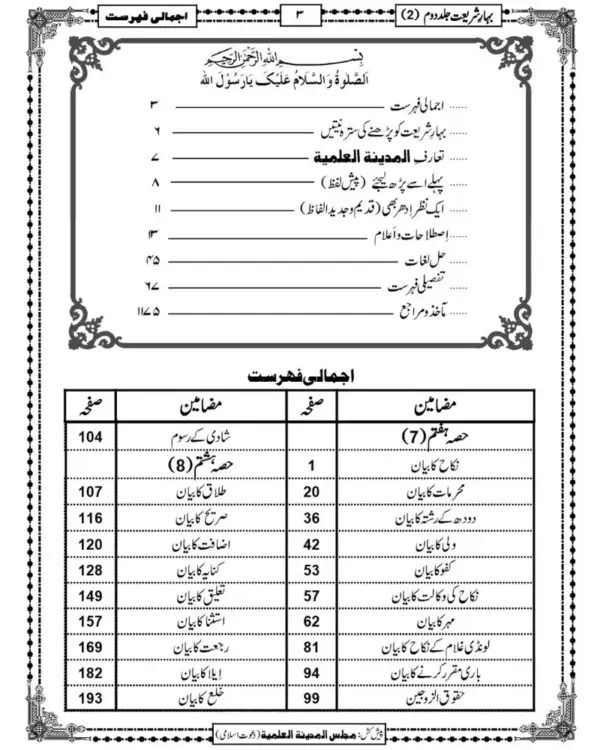 بہارِ شریعت جلد دوم (2) ۳ اجمالی فہرست
بِسْمِ اللهِ الرَّحْمٰنِ الرَّحِيْمِ
اَلصَّلٰوةُ وَالسَّلَامُ عَلَيْكَ يَارَسُوْلَ الله
..... اجمالی فہرست ۳
..... بہارِ شریعت کو پڑھنے کی سترہ نیتیں ۶
..... تعارف المدینة العلمیة ۷
..... پہلے اسے پڑھ لیجئے (پیش لفظ) ۸
..... ایک نظر ادھر بھی (قدیم و جدید الفاظ) ۱۱
..... اصطلاحات و اَعلام ۱۳
..... حل لغات ۴۵
..... تفصیلی فہرست ۶۷
..... مآخذ و مراجع ۱۱۷۵
اجمالی فہرست
مضامین صفحہ مضامین صفحہ
حصہ ہفتم (7) شادی کے رسوم 104
نکاح کا بیان 1 حصہ ہشتم (8)
محرمات کا بیان 20 طلاق کا بیان 107
دودھ کے رشتہ کا بیان 36 صریح کا بیان 116
ولی کا بیان 42 اضافت کا بیان 120
کفو کا بیان 53 کنایہ کا بیان 128
نکاح کی وکالت کا بیان 57 تعلیق کا بیان 149
مہر کا بیان 62 استثنا کا بیان 157
لونڈی غلام کے نکاح کا بیان 81 رجعت کا بیان 169
باری مقرر کرنے کا بیان 94 ایلا کا بیان 182
حقوق الزوجین 99 خلع کا بیان 193
پیش کش: مجلس المدینة العلمیة (دعوت اسلامی)